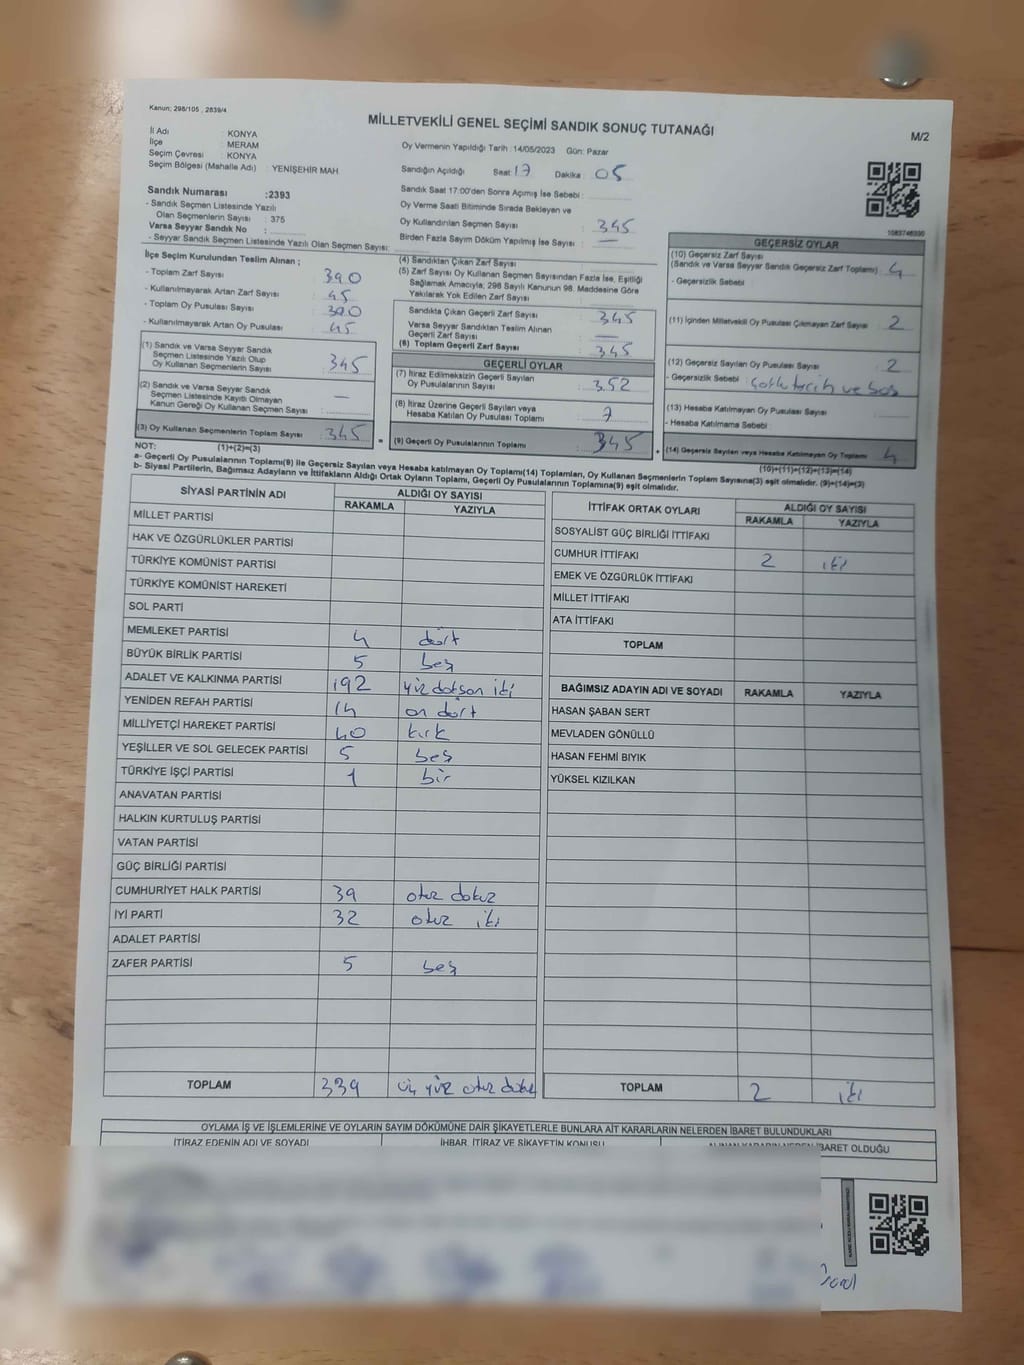 Kanun; 298/105 , 2839/4
MİLLETVEKİLİ GENEL SEÇİMİ SANDIK SONUÇ TUTANAĞI
M/2
İl Adı : KONYA
İlçe : MERAM
Seçim Çevresi : KONYA
Seçim Bölgesi (Mahalle Adı) : YENİŞEHİR MAH.
Oy Vermenin Yapıldığı Tarih :14/05/2023 Gün: Pazar
Sandığın Açıldığı Saat 17 Dakika : 05
Sandık Saat 17:00'den Sonra Açılmış İse Sebebi :
Sandık Numarası :2393
- Sandık Seçmen Listesinde Yazılı
Olan Seçmenlerin Sayısı : 375
Varsa Seyyar Sandık No :
- Seyyar Sandık Seçmen Listesinde Yazılı Olan Seçmen Sayısı:
Oy Verme Saati Bitiminde Sırada Bekleyen ve
Oy Kullandırılan Seçmen Sayısı : 345
Birden Fazla Sayım Döküm Yapılmış İse Sayısı : —
İlçe Seçim Kurulundan Teslim Alınan ;
- Toplam Zarf Sayısı : 390
- Kullanılmayarak Artan Zarf Sayısı : 45
- Toplam Oy Pusulası Sayısı : 390
- Kullanılmayarak Artan Oy Pusulası : 45
(1) Sandık ve Varsa Seyyar Sandık
Seçmen Listesinde Yazılı Olup
Oy Kullanan Seçmenlerin Sayısı : 345
(2) Sandık ve Varsa Seyyar Sandık
Seçmen Listesinde Kayıtlı Olmayan
Kanun Gereği Oy Kullanan Seçmen Sayısı : —
(3) Oy Kullanan Seçmenlerin Toplam Sayısı : 345
(4) Sandıktan Çıkan Zarf Sayısı :
(5) Zarf Sayısı Oy Kullanan Seçmen Sayısından Fazla İse, Eşitliği
Sağlamak Amacıyla, 298 Sayılı Kanunun 98. Maddesine Göre
Yakılarak Yok Edilen Zarf Sayısı :
Sandıkta Çıkan Geçerli Zarf Sayısı : 345
Varsa Seyyar Sandıktan Teslim Alınan
Geçerli Zarf Sayısı : —
(6) Toplam Geçerli Zarf Sayısı : 345
GEÇERLİ OYLAR
(7) İtiraz Edilmeksizin Geçerli Sayılan
Oy Pusulalarının Sayısı : 352
(8) İtiraz Üzerine Geçerli Sayılan veya
Hesaba Katılan Oy Pusulası Toplamı : 7
= (9) Geçerli Oy Pusulalarının Toplamı : 345 +
1083746330
GEÇERSİZ OYLAR
(10) Geçersiz Zarf Sayısı
(Sandık ve Varsa Seyyar Sandık Geçersiz Zarf Toplamı) : 4
- Geçersizlik Sebebi :
(11) İçinden Milletvekili Oy Pusulası Çıkmayan Zarf Sayısı : 2
(12) Geçersiz Sayılan Oy Pusulası Sayısı : 2
- Geçersizlik Sebebi : ve
(13) Hesaba Katılmayan Oy Pusulası Sayısı :
- Hesaba Katılmama Sebebi :
(14) Geçersiz Sayılan veya Hesaba Katılmayan Oy Toplamı : 4
NOT: (1)+(2)=(3)
(10)+(11)+(12)+(13)=(14)
a- Geçerli Oy Pusulasının Toplamı(9) ile Geçersiz Sayılan veya Hesaba katılmayan Oy Toplamı(14) Toplamları, Oy Kullanan Seçmenlerin Toplam Sayısına(3) eşit olmalıdır. (9)+(14)=(3)
b- Siyasi Partilerin, Bağımsız Adayların ve İttifakların Aldığı Ortak Oyların Toplamı, Geçerli Oy Pusulasının Toplamına(9) eşit olmalıdır.
SİYASİ PARTİNİN ADI ALDIĞI OY SAYISI
RAKAMLA YAZIYLA
MİLLET PARTİSİ
HAK VE ÖZGÜRLÜKLER PARTİSİ
TÜRKİYE KOMÜNİST PARTİSİ
TÜRKİYE KOMÜNİST HAREKETİ
SOL PARTİ
MEMLEKET PARTİSİ 4 dört
BÜYÜK BİRLİK PARTİSİ 5 beş
ADALET VE KALKINMA PARTİSİ 192 yüz doksan iki
YENİDEN REFAH PARTİSİ 14 on dört
MİLLİYETÇİ HAREKET PARTİSİ 40 kırk
YEŞİLLER VE SOL GELECEK PARTİSİ 5 beş
TÜRKİYE İŞÇİ PARTİSİ 1 bir
ANAVATAN PARTİSİ
HALKIN KURTULUŞ PARTİSİ
VATAN PARTİSİ
GÜÇ BİRLİĞİ PARTİSİ
CUMHURİYET HALK PARTİSİ 39 otuz dokuz
İYİ PARTİ 32 otuz iki
ADALET PARTİSİ
ZAFER PARTİSİ 5 beş
TOPLAM 339 üç yüz otuz dokuz
İTTİFAK ORTAK OYLARI ALDIĞI OY SAYISI
RAKAMLA YAZIYLA
SOSYALİST GÜÇ BİRLİĞİ İTTİFAKI
CUMHUR İTTİFAKI 2 iki
EMEK VE ÖZGÜRLÜK İTTİFAKI
MİLLET İTTİFAKI
ATA İTTİFAKI
TOPLAM
BAĞIMSIZ ADAYIN ADI VE SOYADI RAKAMLA YAZIYLA
HASAN ŞABAN SERT
MEVLADEN GÖNÜLLÜ
HASAN FEHMİ BIYIK
YÜKSEL KIZILKAN
TOPLAM 2 iki
OYLAMA İŞ VE İŞLEMLERİNE VE OYLARIN SAYIM DÖKÜMÜNE DAİR ŞİKAYETLERLE BUNLARA AİT KARARLARIN NELERDEN İBARET BULUNDUKLARI
İTİRAZ EDENİN ADI VE SOYADI İHBAR, İTİRAZ VE ŞİKAYETİN KONUSU ALINAN KARARIN NEDEN İBARET OLDUĞU